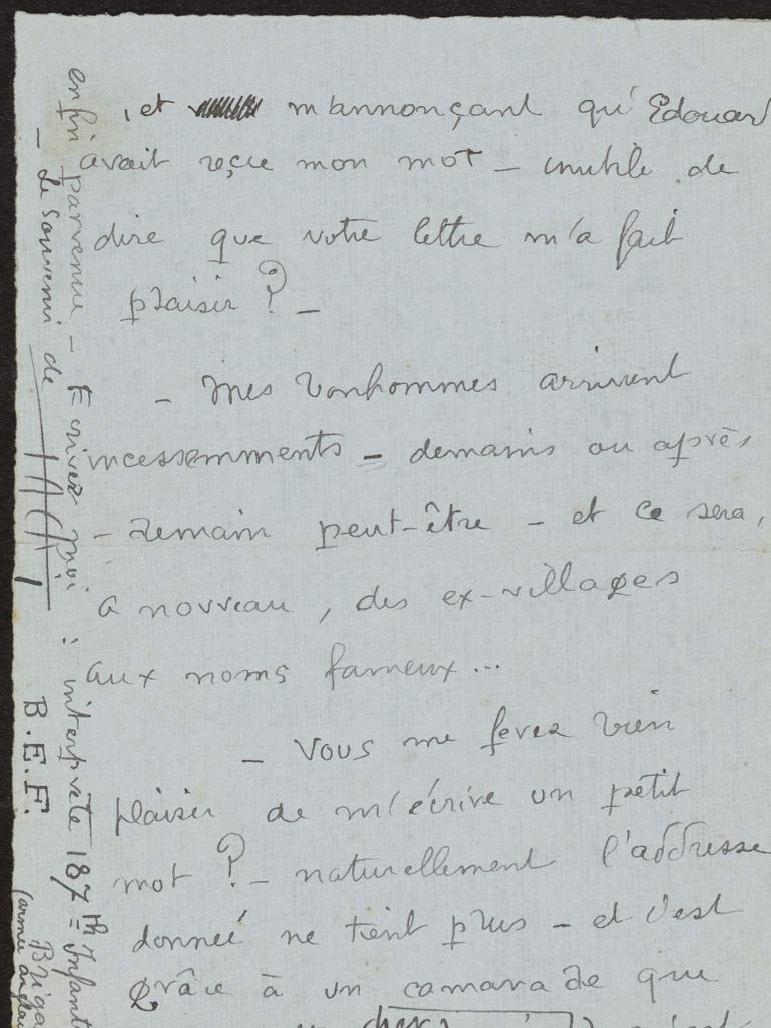 , et m'annonçant qu'Edouard
avait reçue mon mot — inutile de
dire que votre lettre m'a fait
plaisir ? —
— Mes bonhommes arrivent
incessemments — demains ou après
- demain peut-être — et ce sera,
a nouveau, des ex-villages
aux noms fameux...
— Vous me ferez bien
plaisir de m'écrire un petit
mot ? — naturellement l'addresse
donneé ne tient plus — et c'est
grâce à un camarade que
cher
enfin parvenue — Ecrivez moi : interprète 187th Infant
— de souvenir de
B.E.F.
Briga
(armée anglai